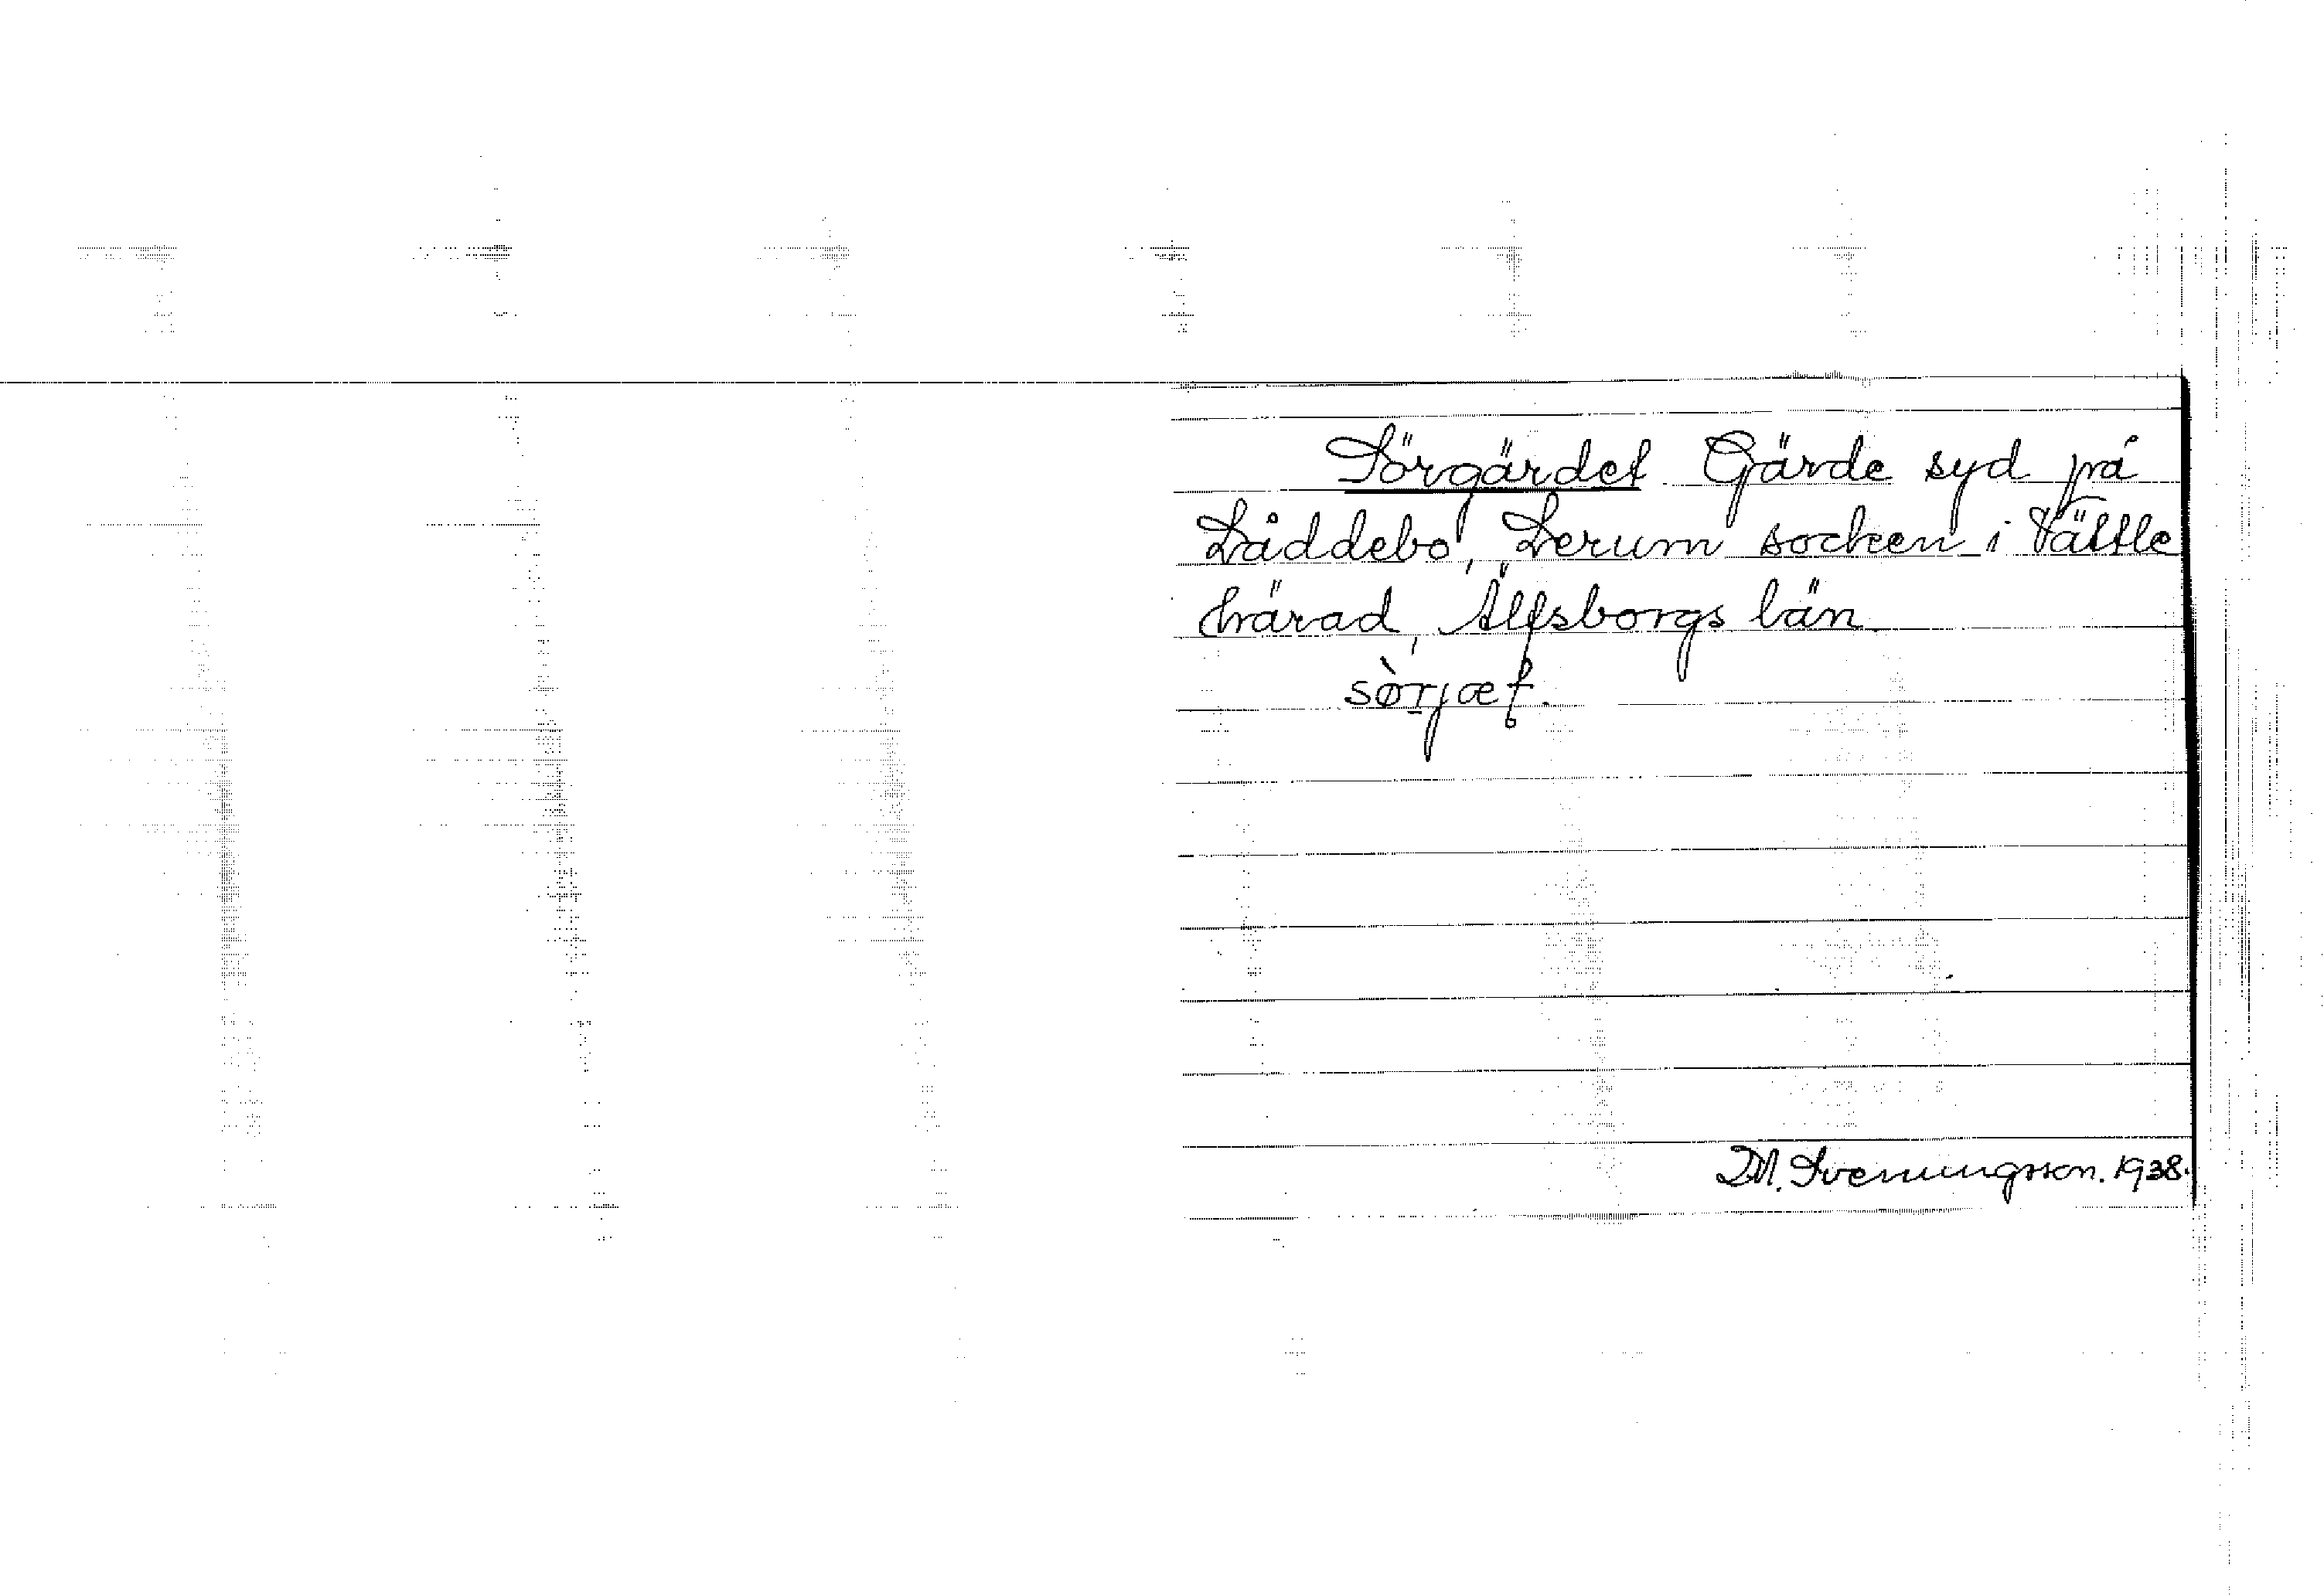 Sörgärdet Gärde syd på
Låddebo, Lerum socken i Vättle
härad, Älfsborgs län.
sø̀rjæt.
D.M. Sveningsson. 1938.